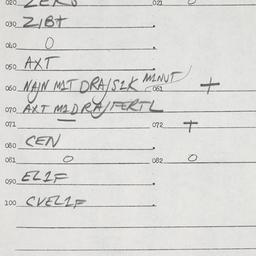 020 ZERO 021 0
030 ZIBT
040 0
050 AXT
060 NAJN M1T DRA/SLK MINUT 061 +
070 AXT M1DRA/FERTL
071 — 072 +
080 CEN
081 0 082 0
090 EL1F
100 CVEL1F